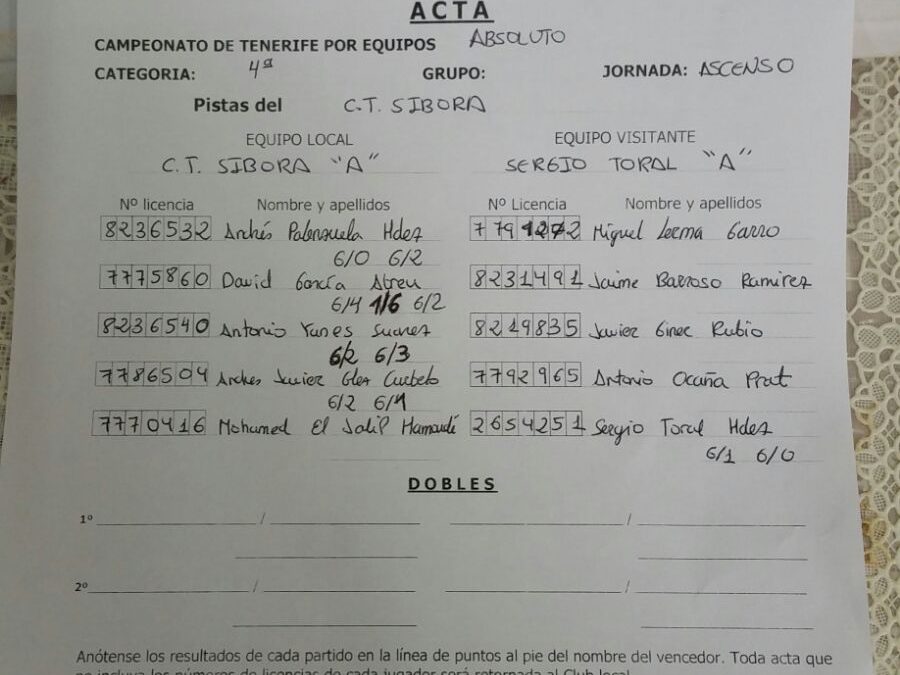 ACTA
CAMPEONATO DE TENERIFE POR EQUIPOS ABSOLUTO
CATEGORIA: 4ª GRUPO: JORNADA: ASCENSO
Pistas del C.T. SIBORA
EQUIPO LOCAL EQUIPO VISITANTE
C.T. SIBORA "A" SERGIO TORAL "A"
Nº licencia Nombre y apellidos Nº Licencia Nombre y apellidos
8236532 Andrés Palenzuela Hdez 7791272 Miguel Lerma Garro
6/0 6/2
7775860 David García Abreu 8231491 Jaime Barroso Ramirez
6/4 1/6 6/2
8236540 Antonio Yanes Suarez 8219835 Javier Giner Rubio
6/2 6/3
7786504 Andres Javier Glez Curbelo 7792965 Antonio Ocaña Prat
6/2 6/1
7770416 Mohamed El Jalil Hamoudi 2654251 Sergio Toral Hdez
6/1 6/0
DOBLES
1º / /
2º / /
Anótense los resultados de cada partido en la línea de puntos al pie del nombre del vencedor. Toda acta que
no incluya los números de licencias de cada jugador será retornada al Club local